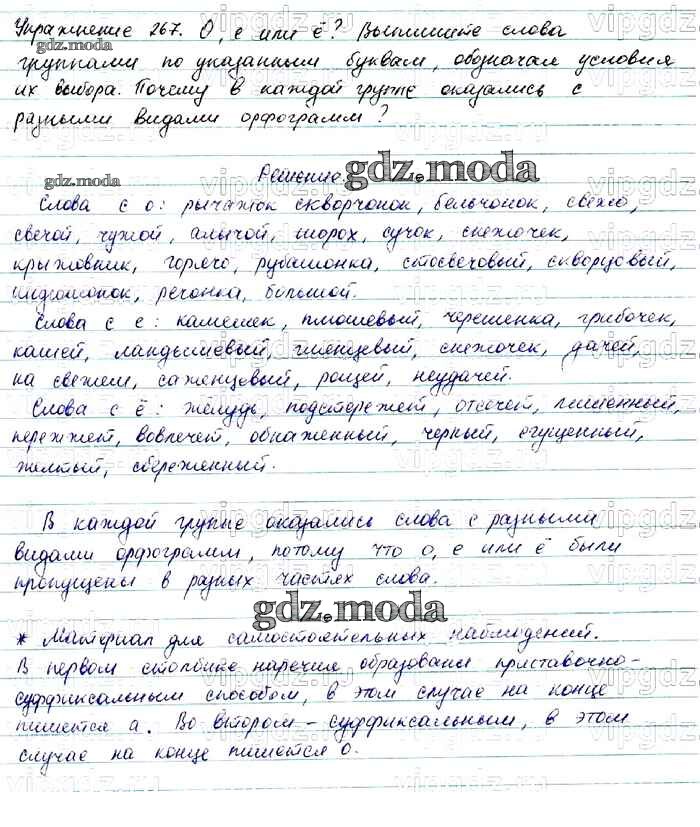 Упражнение 267. О, е или ё? Выпишите слова
группами по указанным буквам, обозначая условия
их выбора. Почему в каждой группе оказались с
разными видами орфограмм?
gdz.moda
Решение.
gdz.moda
Слова с о: рычажок скворчонок, бельчонок, свежо,
свечой, чужой, алычой, шорох, сучок, снежочек,
крыжовник, горячо, рубашонка, стосвечовый, скворцовый,
мышонок, речонка, большой.
Слова с е: камешек, плюшевый, черешенка, грибочек,
кашей, ландышевый, глянцевый, снежочек, дачей,
на свежем, саженцевый, рощей, неудачей.
Слова с ё: жёлудь, подстережет, отсечет, лишенный,
пережжет, вовлечет, обнаженный, черный, сгущенный,
желтый, сбереженный.
В каждой группе оказались слова с разными
видами орфограмм, потому что о, е или ё были
пропущены в разных частях слова.
gdz.moda
* Материал для самостоятельных наблюдений.
В первом столбике наречия образованы приставочно-
суффиксальным способом, в этом случае на конце
пишется а. Во втором – суффиксальным, в этом
случае на конце пишется о.